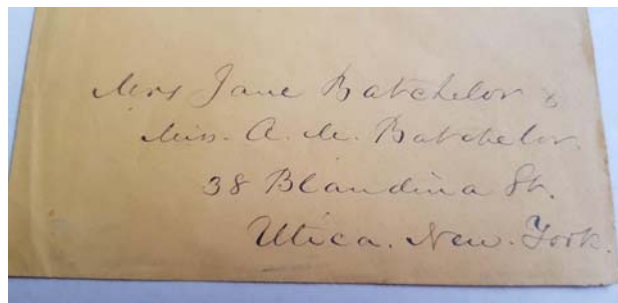 Mrs Jane Batchelor &
Miss. A. M. Batchelor.
38 Blandina St.
Utica. New. York.